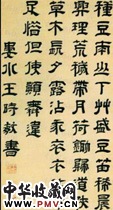 種豆南山下艸盛豆苗稀晨
興理荒穢帶月荷鋤歸道狹
草木長夕露沾我衣衣沾不
足惜但使願無違
婁水王時敏書
中华收藏网
WWW.PMV.CN